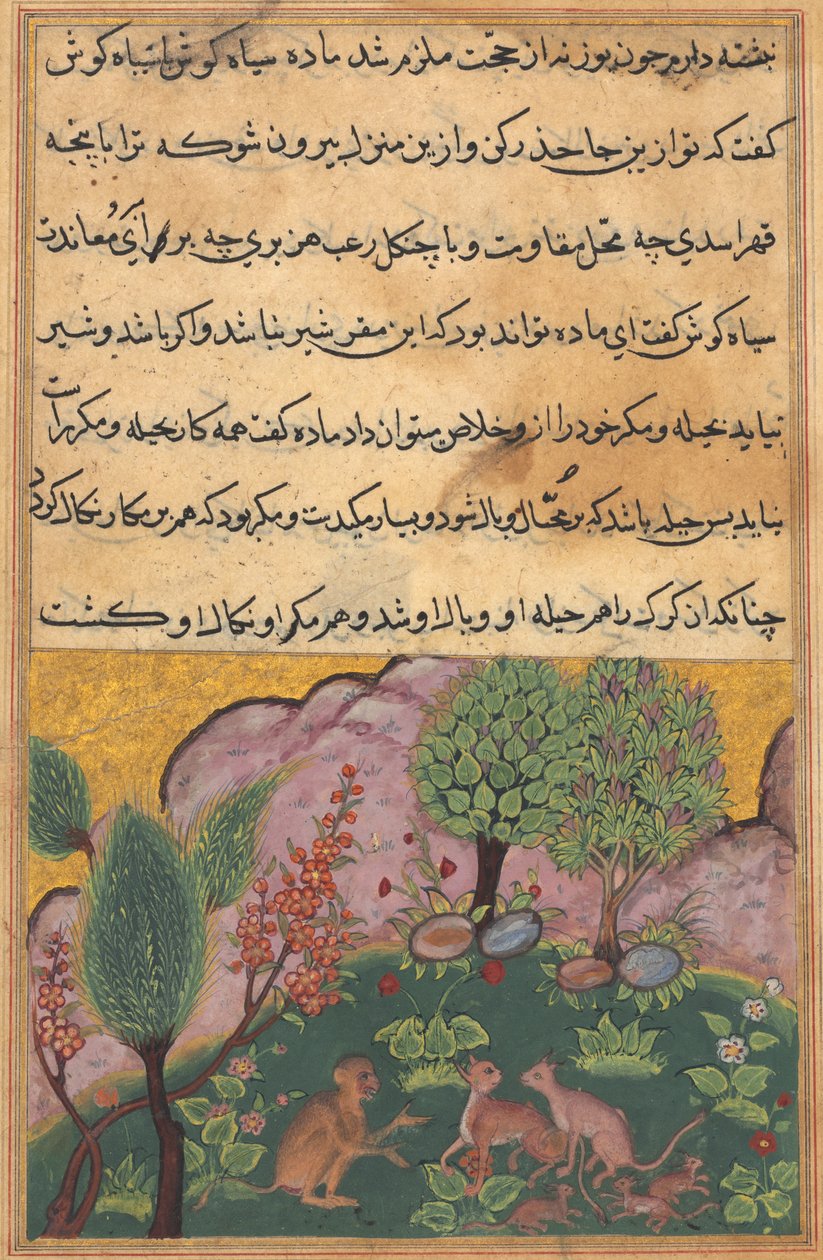 نبشته دارم جون بوزنه از حجّت ملزم شد ماده سیاه کوش با سیاه کوش
کفت که تو ازین جا حذر کن و ازین منزل بیرون شو که ترا با پنجه
قهر اسدی چه محّل مقاومت و با چنکل رعب هزبری چه برک و رای معاندت
سیاه کوش کفت ای ماده تواند بود که این مقر شیر نباشد و اکر باشد و شیر
بیاید بحیله و مکر خود را از و خلاص میتوان داد ماده کفت همه کار بحیله و مکر راست
نیاید بس حیله باشد که بر مُحتال وبال شود و بسیار مکیدت و مکر بود که هم بر مکار نکال کردد
چنانکه ان کرک را هم حیله او وبال او شد و هم مکر او نکال او کشت